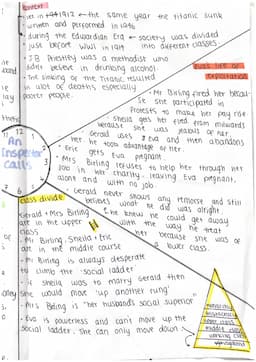 Context
Set in 1912 ← the same year the titanic sunk
written and performed in 1946
during the Edwardian Era ← society was divided
just before WW1 in 1914 into different classes
J.B Priestley was a methodist who
didnt believe in drinking alcohol.
The sinking of the Titanic resulted
in alot of deaths especially
poorer people.
exploitation
Mr Birling fired her becau-
se she participated in
Protests to make her pay rise
Sheila gets her fired from milwards
because she was jealous of her.
Gerald uses Eva and then abandons
her he took advantage of her.
Eric gets Eva pregnant.
Mrs Birling refuses to help her through her
job in her charity leaving Eva pregnant,
alone and with no job
Gerald never shows any remorse and still
believes what he did was alright
he knew he could get away
with the way he treat
her because she was of
a lower class.
An
Inspector
calls
class divide
Gerald + Mrs Birling
are in the upper
class
Mr Birling, Sheila + Eric
are in the middle course
Mr Birling is always desperate
to climb the 'social ladder'
if Sheila was to marry Gerald then
she would move 'up another rung'
Mrs Birling is "her husbands social superior"
Eva is powerless and can't move up the
social ladder. She can only move down
monarchy
aristocracy
middle class
working class